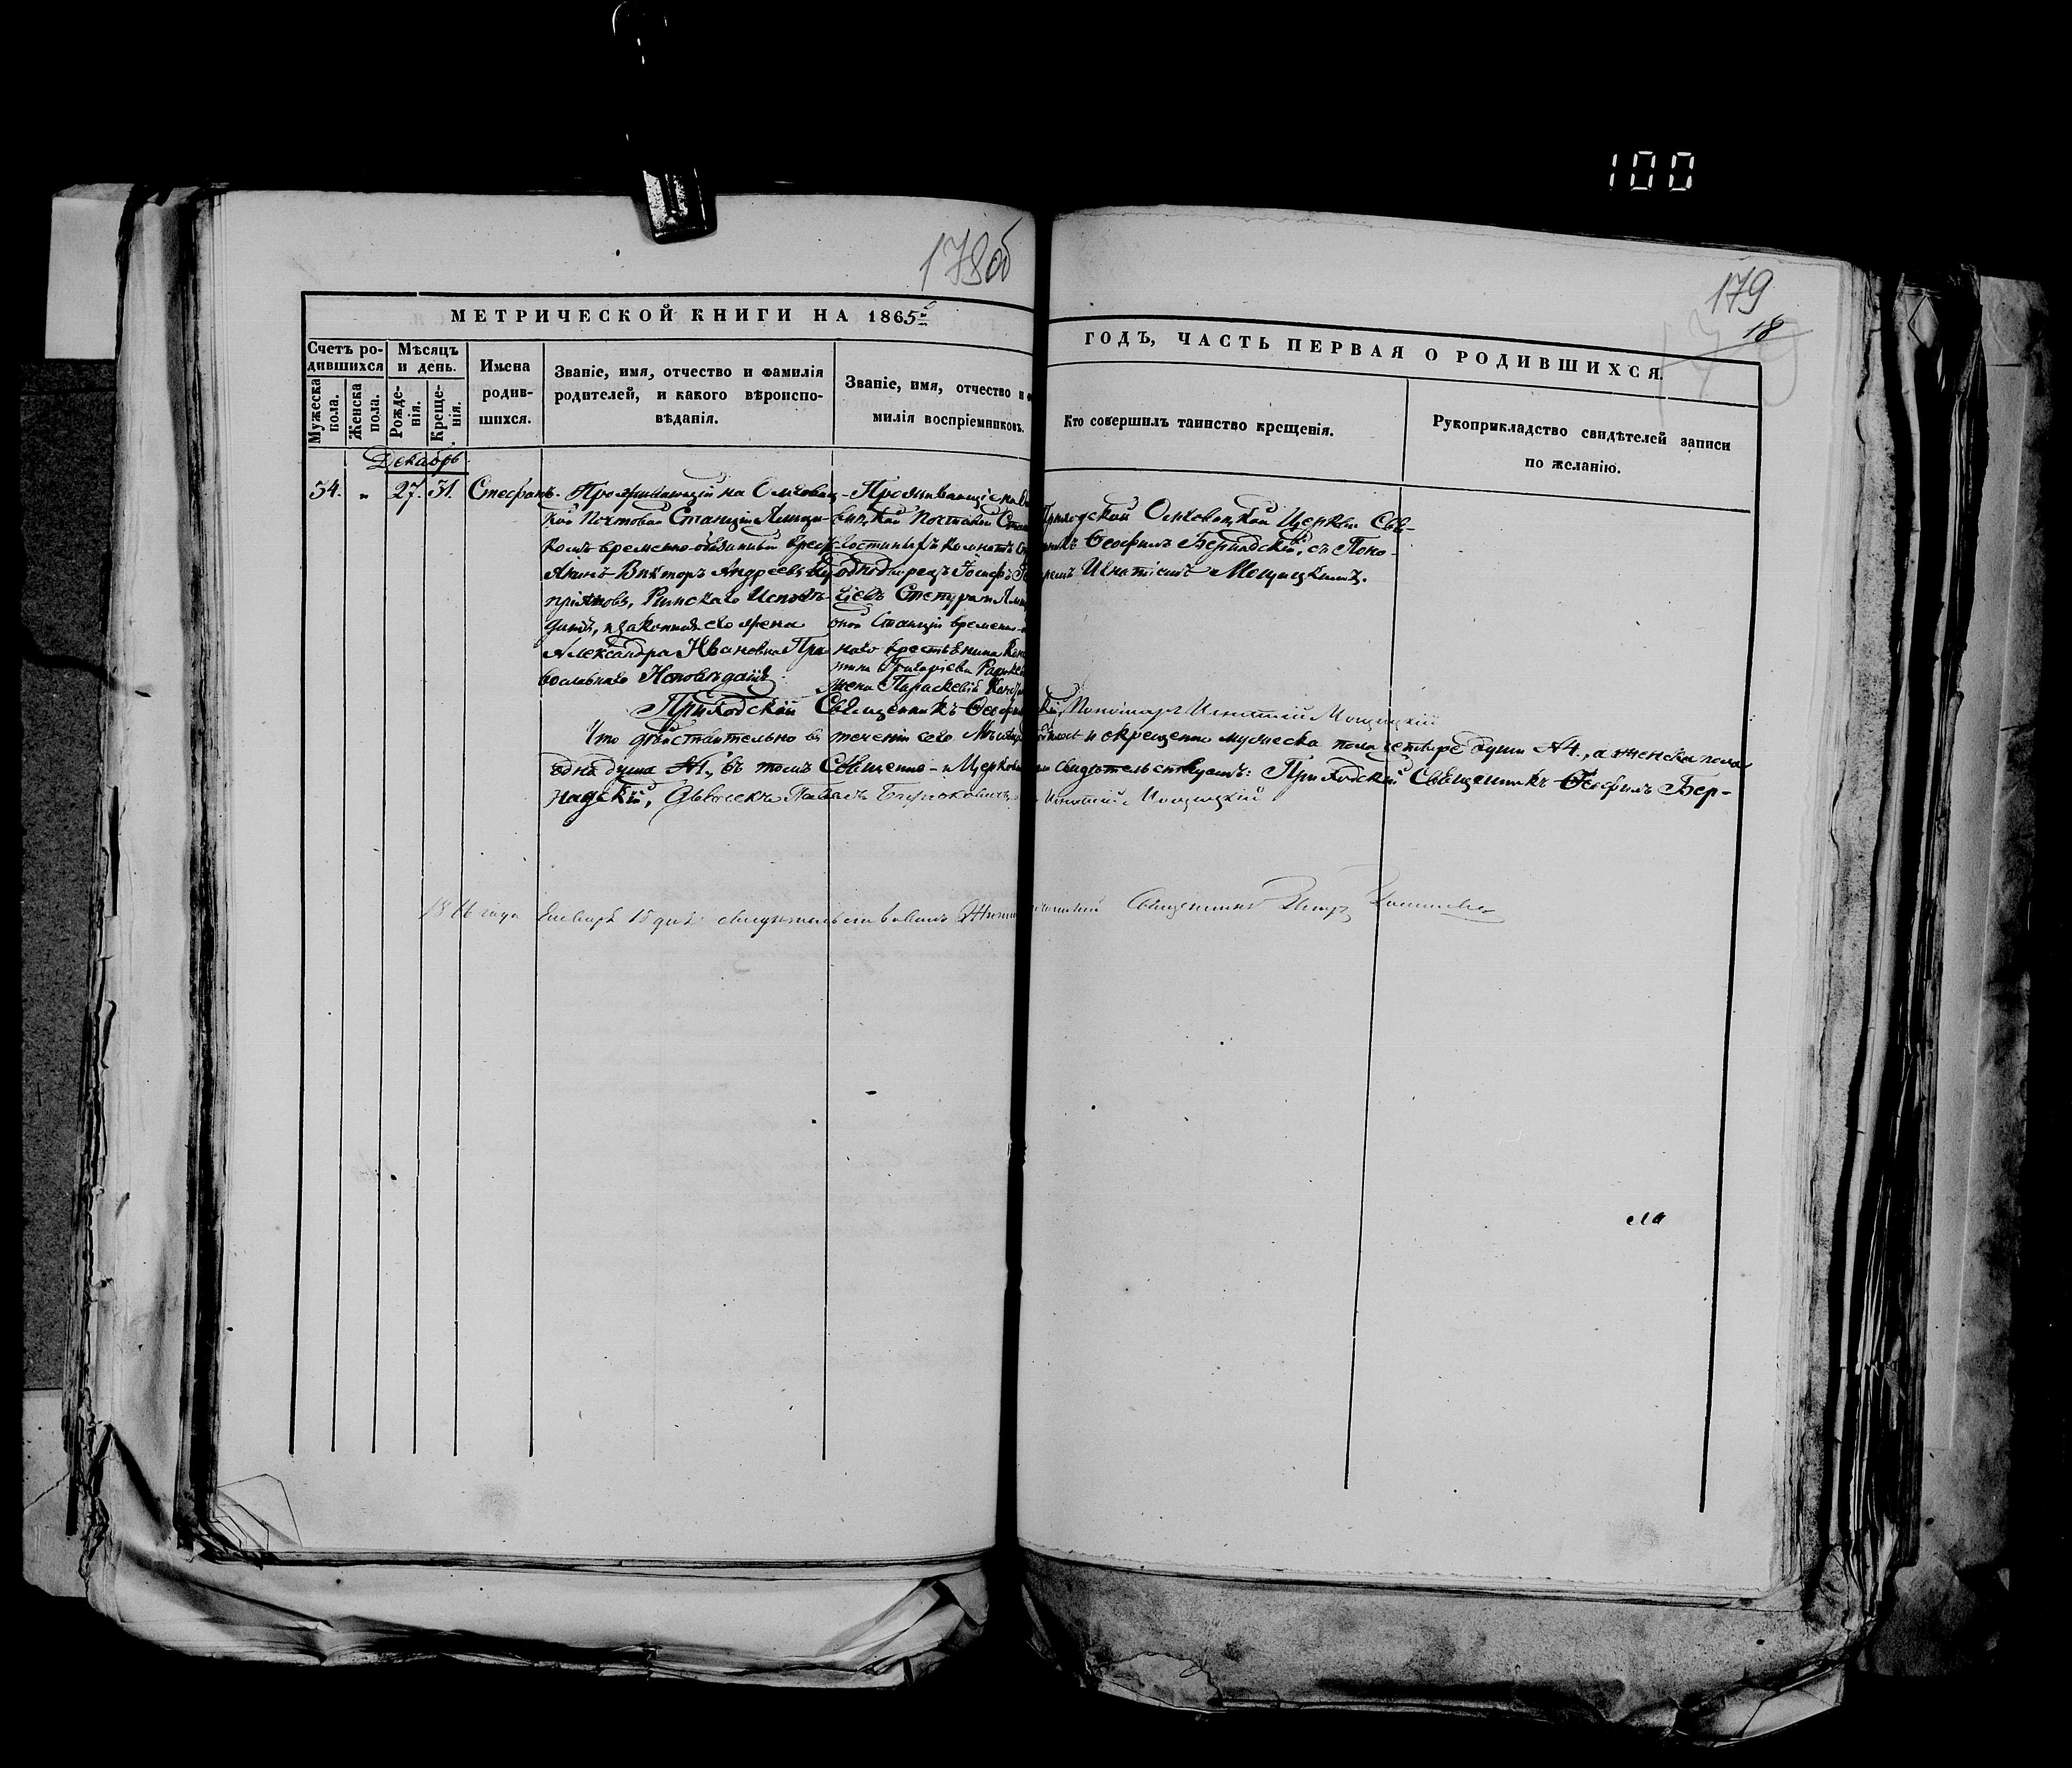 100
178об
179
18
МЕТРИЧЕСКОЙ КНИГИ НА 1865й
ГОДЪ, ЧАСТЬ ПЕРВАЯ О РОДИВШИХСЯ.
Счетъ родившихся
Мужеска пола.
Женска пола.
Мѣсяцъ и день.
Рожденія.
Крещенія.
Имена родившихся.
Званіе, имя, отчество и фамилія
родителей, и какого вѣроиспо-
вѣданія.
Званіе, имя, отчество и
милія воспріемниковъ.
Кто совершилъ таинство крещенія.
Рукоприкладство свидѣтелей записи
по желанію.
Декабрь
34. „ 27. 31. Стефанъ.
Проживающій на Олховец-
кой Почтовой Станціи Ямщи-
комъ временно-обязанный крест-
Викторъ Андреевъ
Римскаго Исповѣ-
данія, и законная его жена
Александра Ивановна Пра-
вославнаго Исповѣданія.
Проживающіе на
вецкой Почтовой
однодворецъ Іосифъ
Станціи временно-
наго крестьянина
жена Параскевія
Приходской Олховецкой Церкви Свя-
Ѳеофилъ Бернадскій, съ Поно-
Игнатіемъ Мощицкимъ.
Приходскій Священникъ Ѳеофилъ
Пономарь Игнатій Мощицкій
Что дѣйствительно въ теченіи сего Мѣсяца
и окрещено мужеска пола четыре души №4., а женска пола
одна душа №1., въ томъ Священно-и Церковно
свидѣтельствуемъ: Приходскій Священникъ Ѳеофилъ Бер-
надскій, Дьячекъ Павелъ
Игнатій Мощицкій
1866 года Января 15 дня свидѣтельствовалъ
Священникъ Петръ